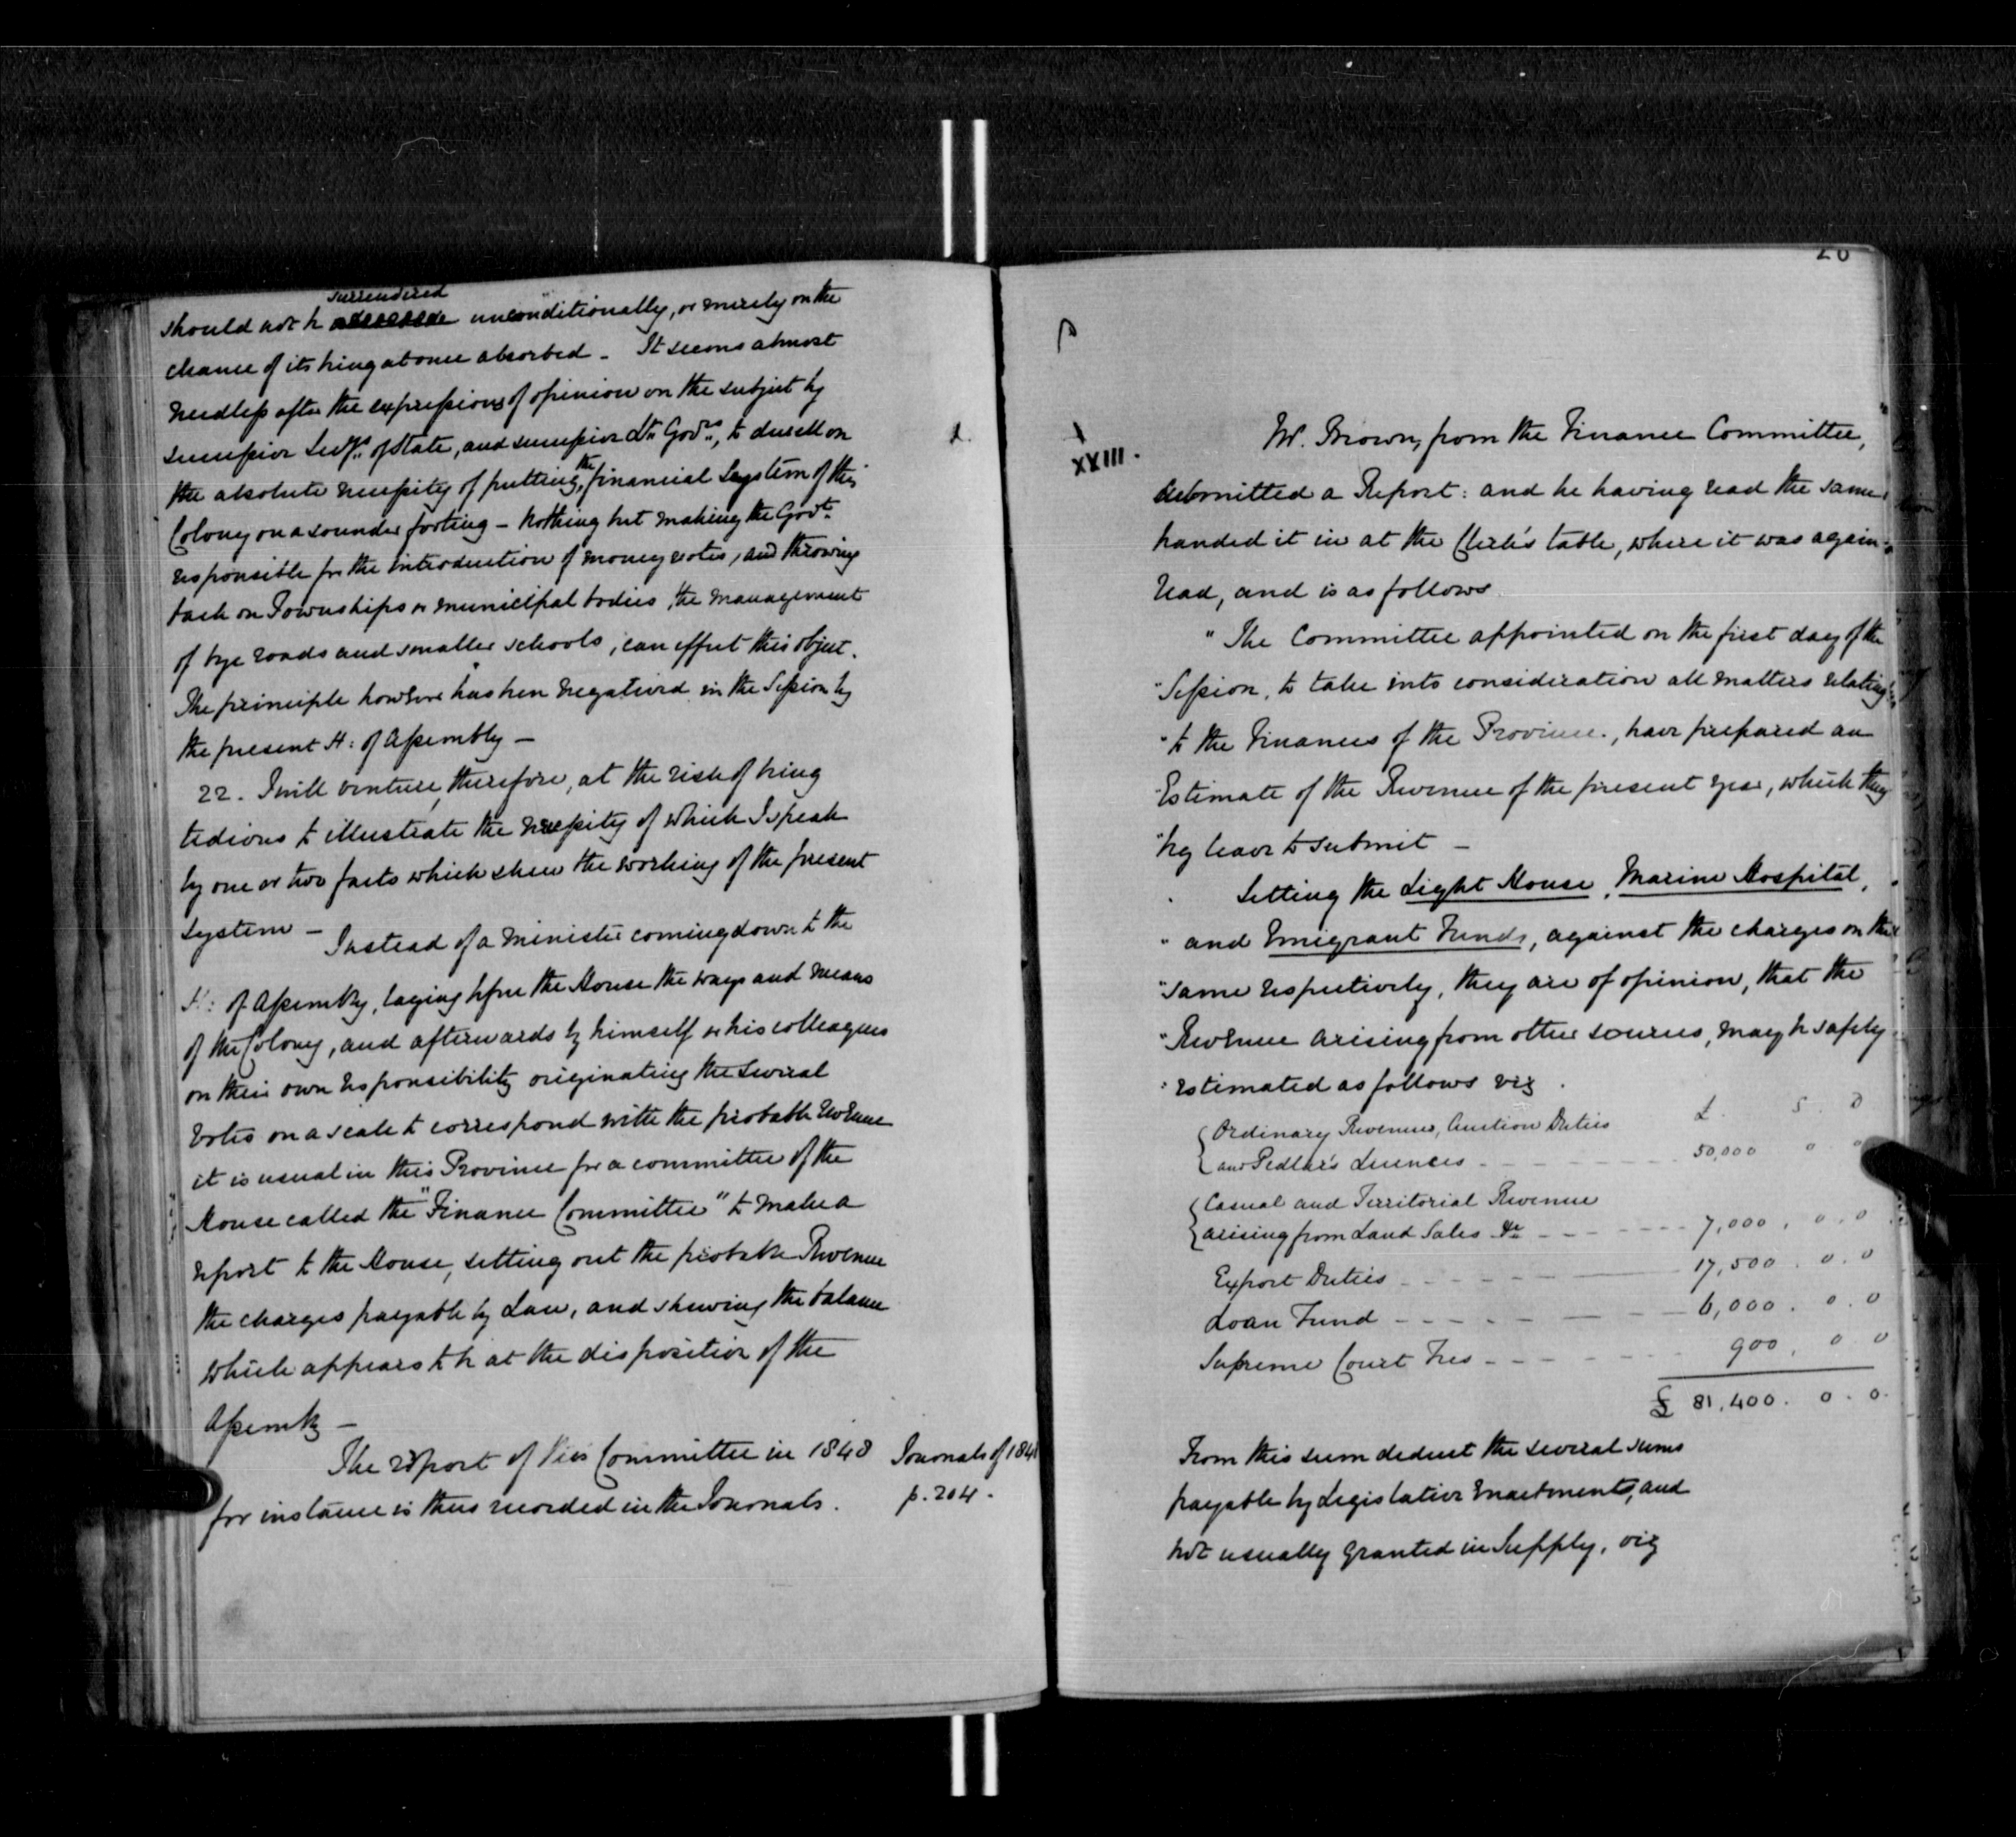 surrendered
should not be unconditionally, or merely on the
chance of its being at once absorbed - It seems almost
needless after the expressions of opinion on the subject by
successive Secys. of State, and successive Lt. Govrs., to dwell on
the absolute necessity of putting the financial system of this
Colony on a sounder footing - Nothing but making the Govt.
responsible for the introduction of money votes, and throwing
back on Townships or municipal bodies, the management
of bye roads and smaller schools, can effect this object.
The principle however has been negatived in the Session by
the present H: of Assembly -
22. I will venture, therefore, at the risk of being
tedious to illustrate the necessity of which I speak
by one or two facts which shew the working of the present
system -
Instead of a minister coming down to the
H: of Assembly, laying before the House the ways and means
of the Colony, and afterwards by himself or his colleagues
on their own responsibility originating the several
votes on a scale to correspond with the probable revenue
it is usual in this Province for a committee of the
House called the "Finance Committee" to make a
report to the House, setting out the probable Revenue
the charges payable by Law, and shewing the balance
which appears to be at the disposition of the
Assembly -
The report of this Committee in 1848
for instance is thus recorded in the Journals.
Journals of 1848
p. 204.
XXIII.
Mr. Brown, from the Finance Committee,
submitted a Report: and he having read the same,
handed it in at the Clerk's table, where it was again
read, and is as follows.
"The Committee appointed on the first day of the
"Session, to take into consideration all matters relating
"to the Finances of the Province., have prepared an
"Estimate of the Revenue of the present year, which they
"beg leave to submit -
Setting the Light House, Marine Hospital,
"and Emigrant Funds, against the charges on the
"same respectively, they are of opinion, that the
"Revenue arising from other sources, may be safely
"estimated as follows viz.
£. S. D
Ordinary Revenues, Auction Duties
and Pedlar's Licences - - - 50,000 0 0
Casual and Territorial Revenue
arising from Land Sales &c - - - 7,000. 0. 0
Export Duties - - - 17,500. 0. 0
Loan Fund - - - 6,000. 0. 0
Supreme Court Fees - - - 900. 0 0
£ 81,400. 0. 0.
From this sum deduct the several sums
payable by Legislative Enactments, and
not usually granted in Supply, viz